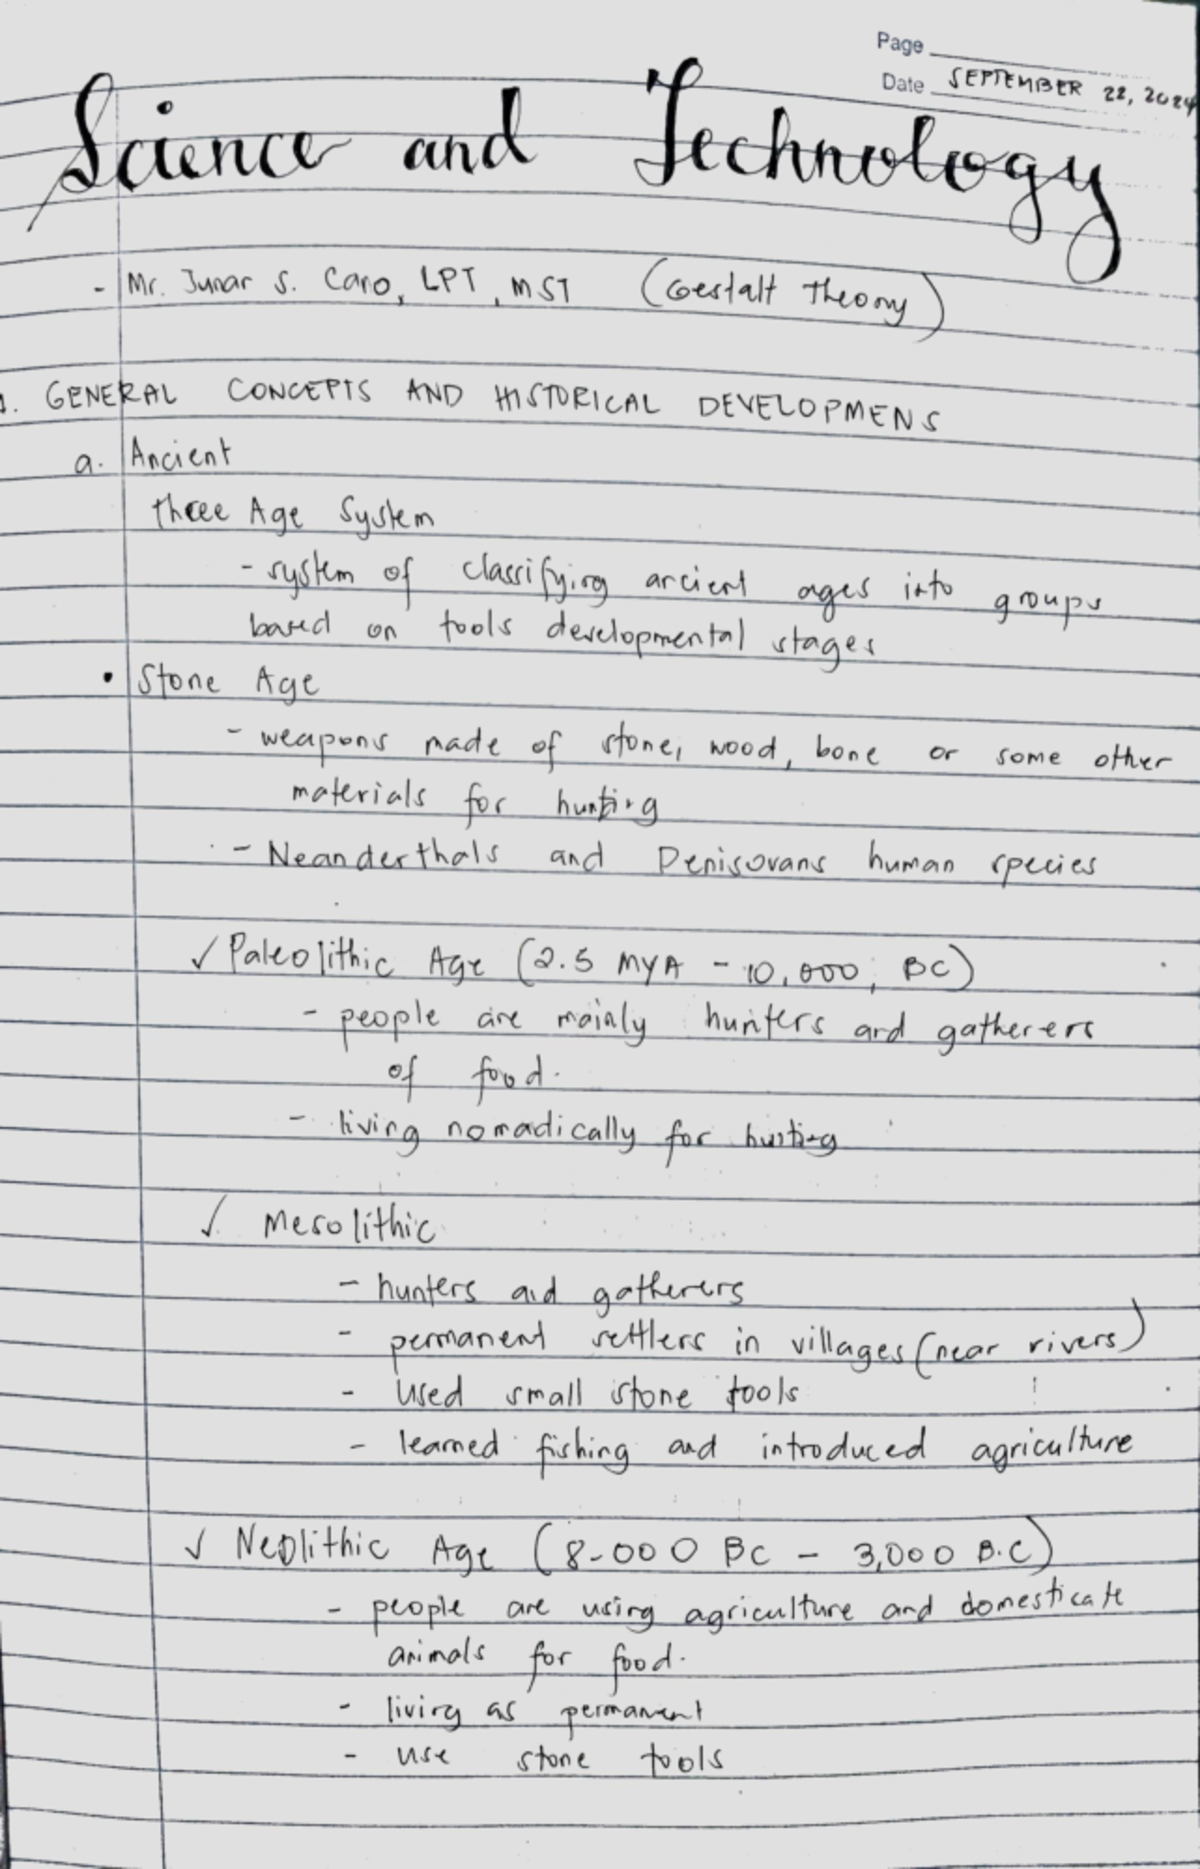 Page
Date SEPTEMBER 22, 2024
Science and Technology
- Mr. Junar S. Cano, LPT, MST (Gestalt Theory)
1. GENERAL CONCEPTS AND HISTORICAL DEVELOPMENS
a. Ancient
three Age System
- system of classifying ancient ages into groups
based on tools developmental stages
• Stone Age
- weapons made of stone, wood, bone or some other
materials for hunting
- Neanderthals and Denisovans human species
✓ Paleolithic Age (2.5 MYA - 10,000, BC)
- people are mainly hunters and gatherers
of food.
- living nomadically for hunting
✓ Mesolithic
- hunters and gatherers
- permanent settlers in villages (near rivers)
- used small stone tools
- learned fishing and introduced agriculture
✓ Neolithic Age (8-000 BC - 3,000 B.C)
- people are using agriculture and domesticate
animals for food.
- living as permanent
- use stone tools